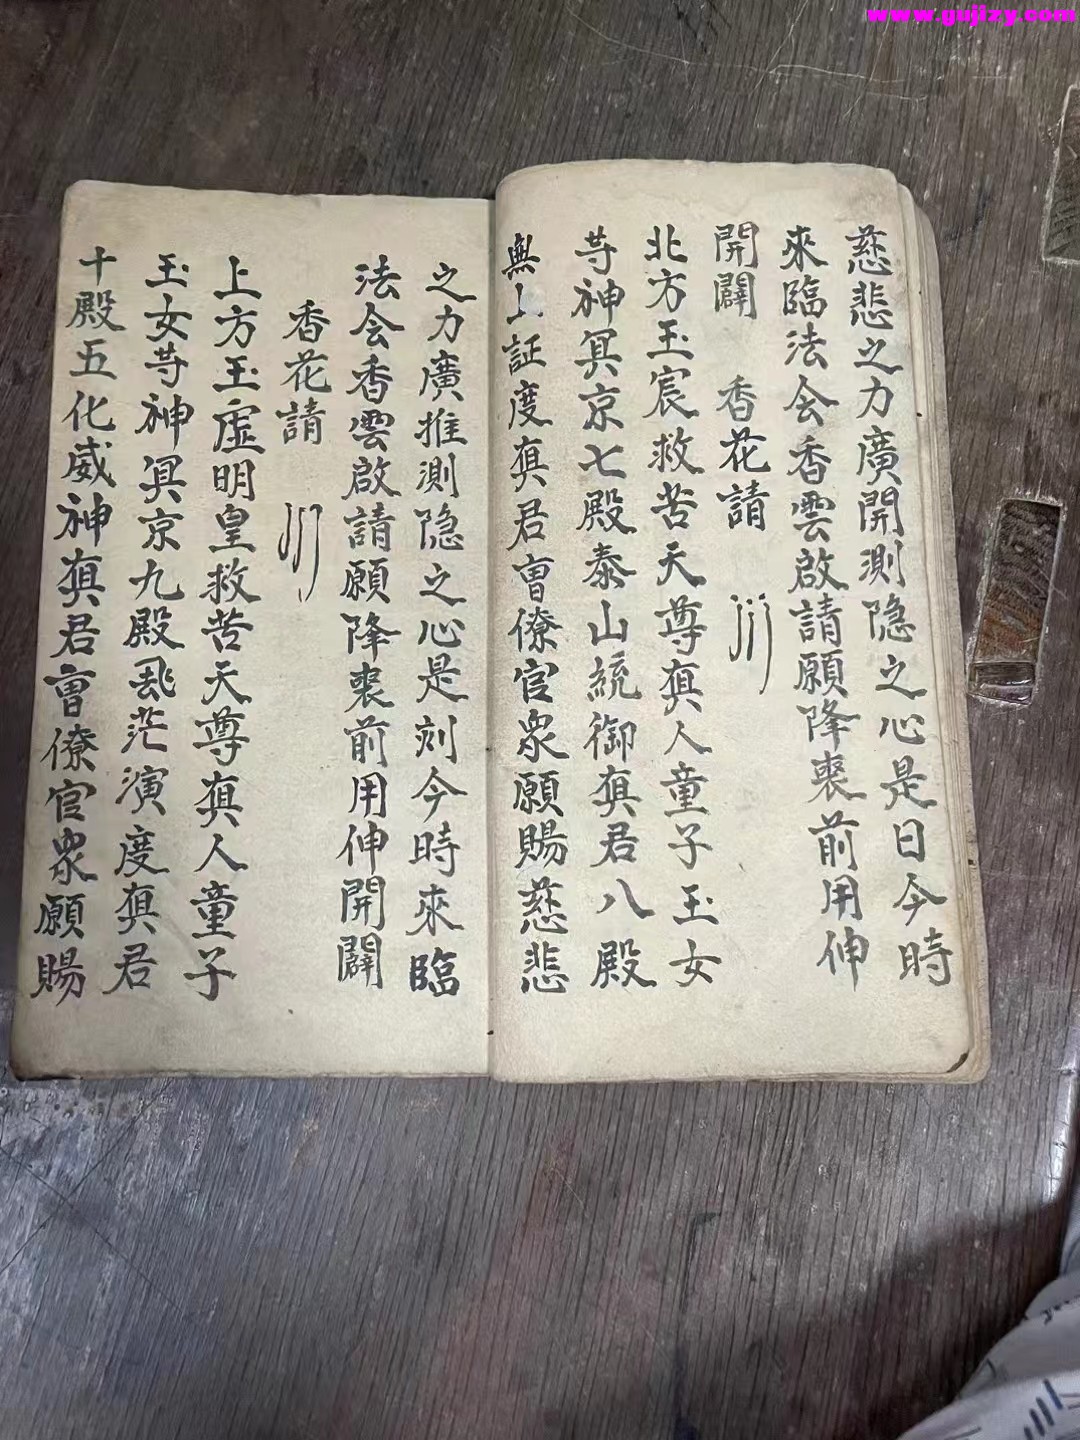 www.gujizy.com
慈悲之力廣開測隐之心是日今時
來臨法会香雲啟請願降裵前用伸
開闢 香花請
北方玉宸救苦天尊真人童子玉女
等神冥京七殿泰山統御真君八殿
無上証度真君曹僚官衆願賜慈悲
之力廣推測隐之心是刻今時來臨
法会香雲啟請願降裵前用伸開闢
香花請
上方玉虛明皇救苦天尊真人童子
玉女等神冥京九殿飛茫演度真君
十殿五化威神真君曹僚官衆願賜